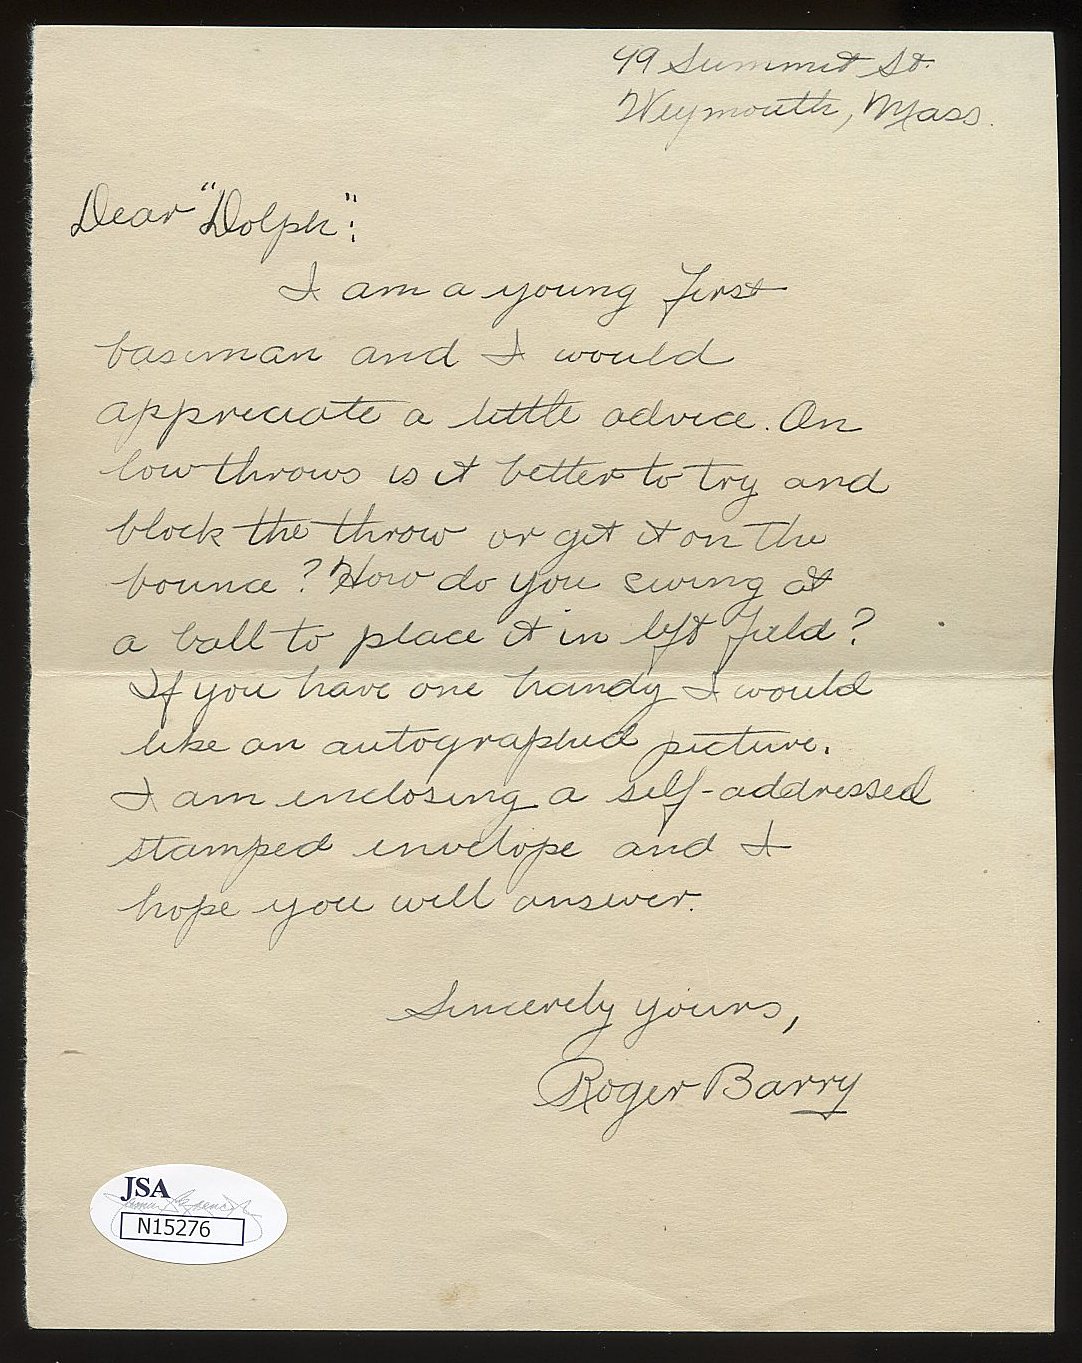 49 Summit St.
Weymouth, Mass.
Dear "Dolph":
I am a young first
baseman and I would
appreciate a little advice. On
low throws is it better to try and
block the throw or get it on the
bounce? How do you swing at
a ball to place it in left field?
If you have one handy I would
like an autographed picture.
I am enclosing a self-addressed
stamped envelope and I
hope you will answer.
Sincerely yours,
Roger Barry
JSA
N15276